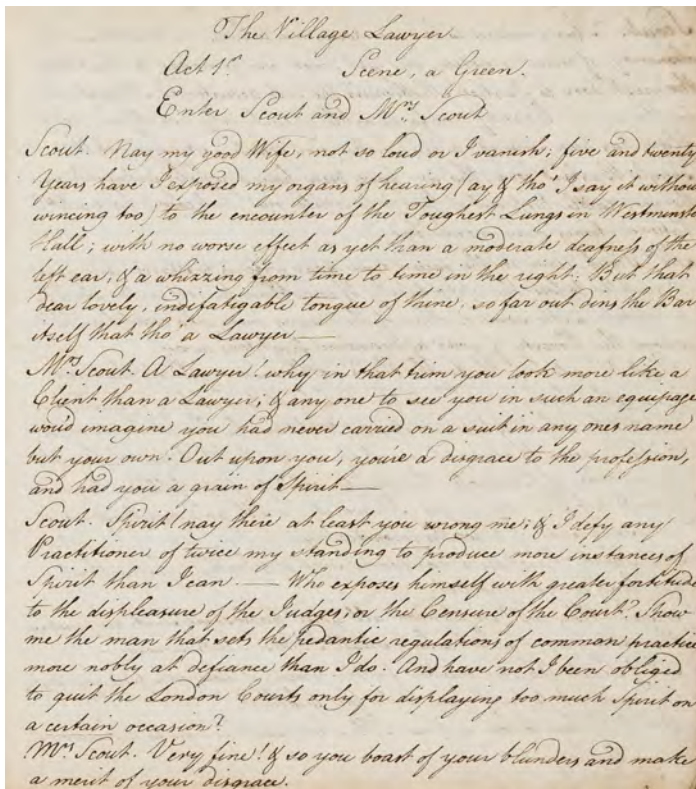 The Village Lawyer
Act 1st Scene, a Green.
Enter Scout and Mrs Scout
Scout. Nay my good Wife, not so loud or I vanish; five and twenty
Years have I exposed my organs of hearing (ay & tho' I say it without
wincing too) to the encounter of the Toughest Lungs in Westminst
Hall; with no worse effect as yet than a moderate deafness of the
left ear, & a whizzing from time to time in the right: But that
dear lovely, indefatigable tongue of thine, so far out dins the Bar
itself that tho' a Lawyer —
Mrs Scout. A Lawyer! why in that trim you look more like a
Client than a Lawyer; & any one to see you in such an equipage
wou'd imagine you had never carried on a suit in any ones name
but your own. Out upon you, you're a disgrace to the profession,
and had you a grain of Spirit —
Scout. Spirit! nay there at least you wrong me; & I defy any
Practitioner of twice my standing to produce more instances of
Spirit than I can. — Who exposes himself with greater fortitude
to the displeasure of the Judges, or the Censure of the Court? Show
me the man that sets the pedantic regulations of common practice
more nobly at defiance than I do. And have not I been obliged
to quit the London Courts only for displaying too much Spirit on
a certain occasion?
Mrs Scout. Very fine! & so you boast of your blunders and make
a merit of your disgrace.